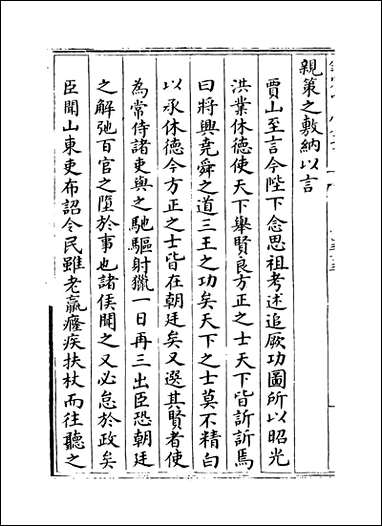 親策之敷納以言
賈山至言今陛下念思祖考述追厥功圖所以昭光
洪業休德使天下舉賢良方正之士天下皆訢訢焉
曰將興堯舜之道三王之功矣天下之士莫不精白
以承休德今方正之士皆在朝廷矣又選其賢者使
為常侍諸吏與之馳驅射獵一日再三出臣恐朝廷
之解弛百官之墮於事也諸侯聞之又必怠於政矣
臣聞山東吏布詔令民雖老羸癃疾扶杖而往聽之